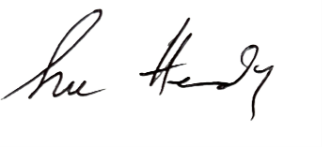 Sue Hendy